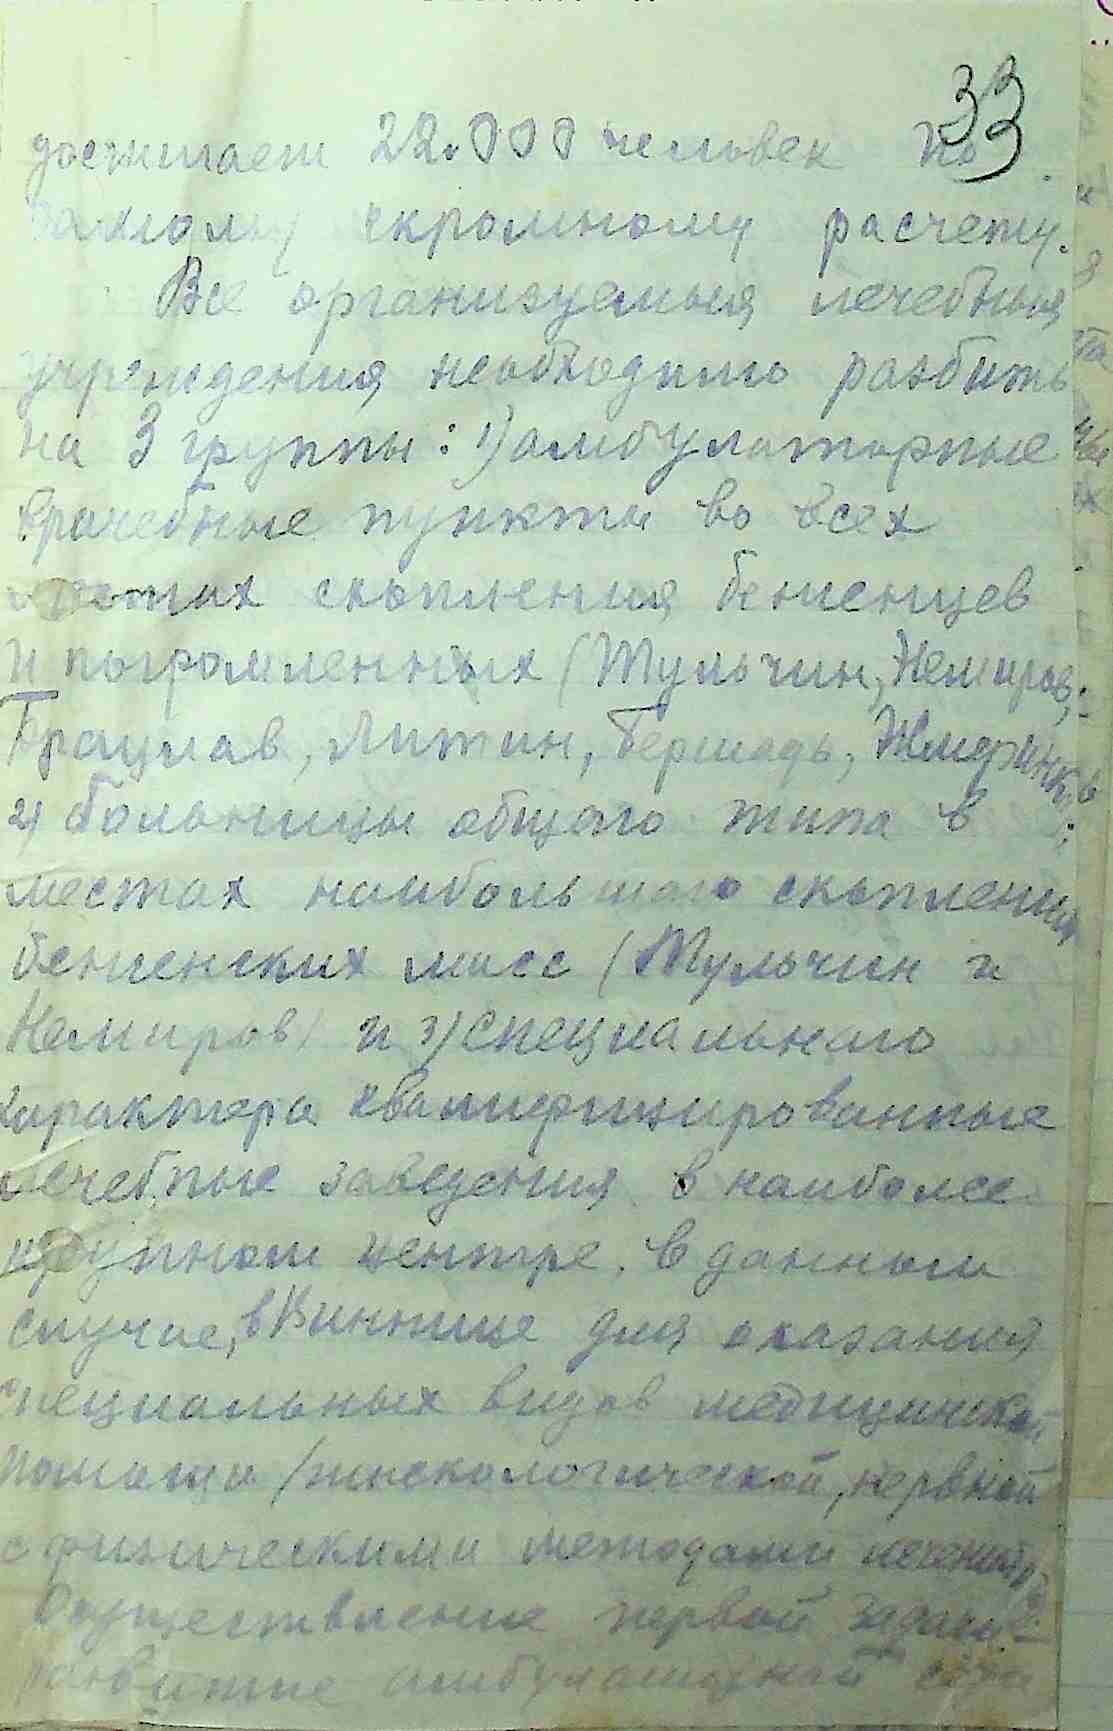 33
достигает 22.000 человек по
самому скромному расчету.
Все организуемыя лечебныя
учреждения необходимо разбить
на 3 группы: 1) амбулаторные
врачебные пункты во всех
местах скопления беженцев
и погромленных (Тульчин, Немиров,
Брацлав, Литин, Бершадь, Жмеринка
2) больницы общаго типа в
местах наибольшаго скопления
беженских масс (Тульчин и
Немиров) и 3) специальнаго
характера квалифицированные
лечебные заведения в наиболее
крупном центре, в данном
случае, в Виннице для оказания
специальных видов медицинской
помощи (гинекологической, нервной
с физическими методами лечения)
Осуществление первой задачи -
развитие амбулаторной